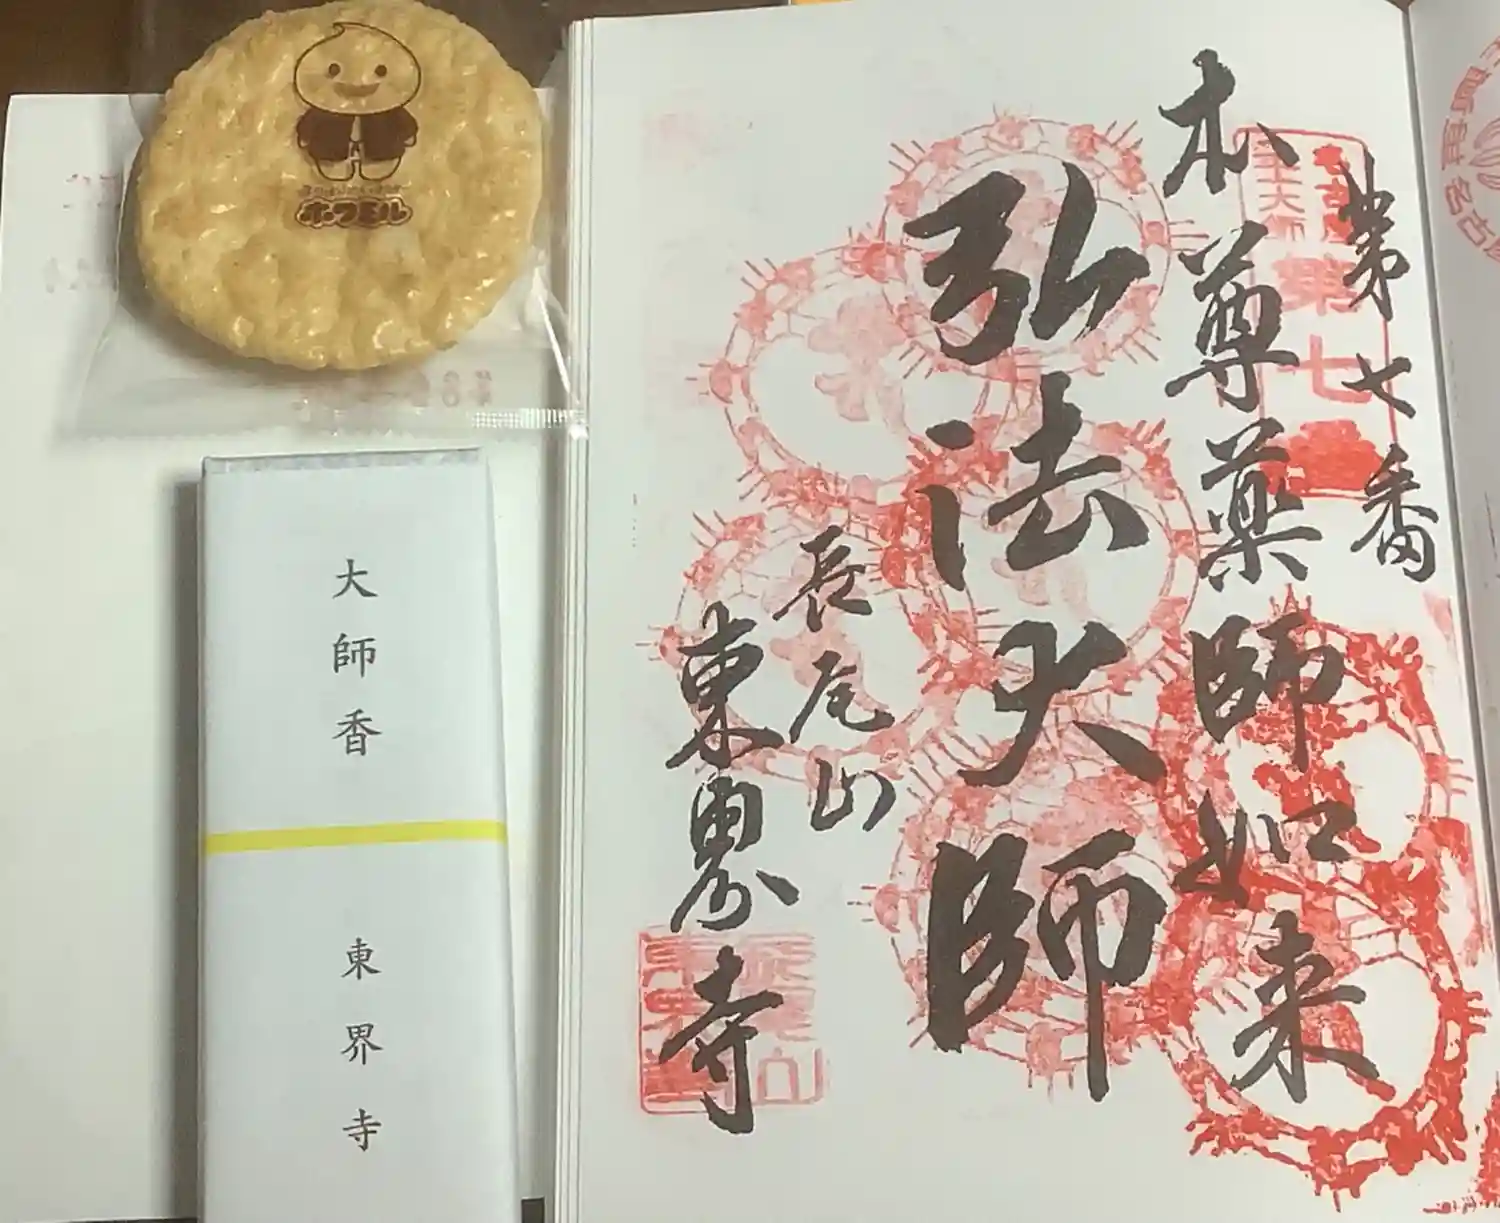 ホワミル
大師香
東界寺
第七番
本尊薬師如来
弘法大師
長尾山
東界寺
第七